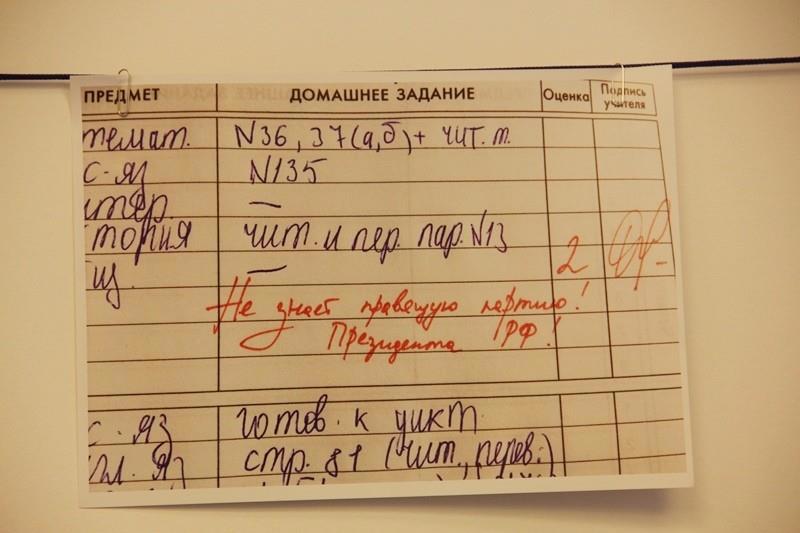 ПРЕДМЕТ ДОМАШНЕЕ ЗАДАНИЕ Оценка Подпись учителя
темат. N36, 37(а,б)+ чит. т.
с-яз N135
итер. —
тория чит. и пер. пар. N13
щ. — 2
Не знает правящую партию!
Президента РФ!
с-яз готов. к дикт
гл. яз стр. 81 (чит., перев.)